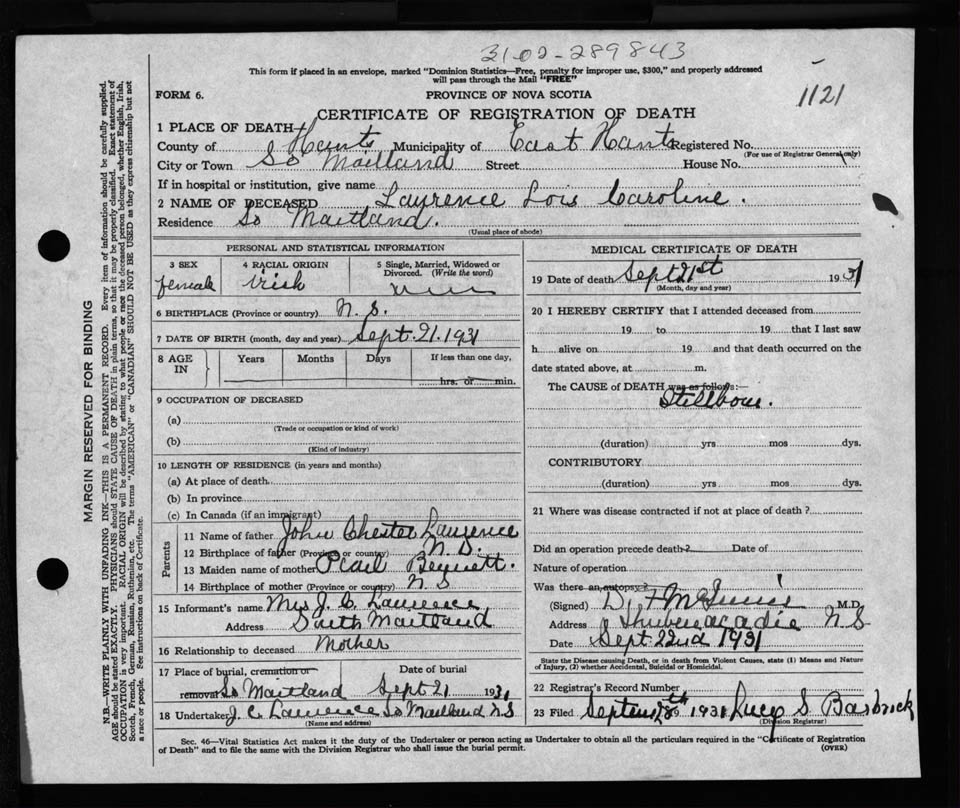 3102-289843
This form if placed in an envelope, marked "Dominion Statistics—Free, penalty for improper use, $300," and properly addressed
will pass through the Mail "FREE"
1121
FORM 6. PROVINCE OF NOVA SCOTIA
CERTIFICATE OF REGISTRATION OF DEATH
1 PLACE OF DEATH
County of Hants Municipality of East Hants Registered No.
(For use of Registrar General only)
City or Town So Maitland Street House No.
If in hospital or institution, give name
2 NAME OF DECEASED Laurence Lois Caroline.
Residence So Maitland.
(Usual place of abode)
PERSONAL AND STATISTICAL INFORMATION
3 SEX 4 RACIAL ORIGIN 5 Single, Married, Widowed or
Divorced. (Write the word)
female Irish
6 BIRTHPLACE (Province or country) N.S.
7 DATE OF BIRTH (month, day and year) Sept. 21. 1931
8 AGE IN Years Months Days If less than one day,
hrs. or min.
9 OCCUPATION OF DECEASED
(a)
(Trade or occupation or kind of work)
(b)
(Kind of industry)
10 LENGTH OF RESIDENCE (in years and months)
(a) At place of death
(b) In province
(c) In Canada (if an immigrant)
Parents
11 Name of father John Chester Laurence
12 Birthplace of father (Province or country) N.S.
13 Maiden name of mother Pearl Bennett.
14 Birthplace of mother (Province or country) N S
15 Informant's name Mrs J. C. Laurence
Address South Maitland
16 Relationship to deceased Mother
17 Place of burial, cremation or Date of burial
removal So Maitland Sept 21 1931
18 Undertaker J. C. Laurence So Maitland N.S
(Name and address)
MEDICAL CERTIFICATE OF DEATH
19 Date of death Sept 21st 1931
(Month, day and year)
20 I HEREBY CERTIFY that I attended deceased from
19 to 19 that I last saw
h alive on 19 and that death occurred on the
date stated above, at m.
The CAUSE of DEATH was as follows:—
Stillborn.
(duration) yrs mos dys.
CONTRIBUTORY
(duration) yrs mos dys.
21 Where was disease contracted if not at place of death?
Did an operation precede death? Date of
Nature of operation
Was there an autopsy?
(Signed) D. F McInnis M.D.
Address Shubenacadie N S
Date Sept 22nd 1931
State the Disease causing Death, or in death from Violent Causes, state (1) Means and Nature
of Injury, (2) whether Accidental, Suicidal or Homicidal.
22 Registrar's Record Number
23 Filed 1931 Lucy S. Barbrick
(Division Registrar)
Sec. 46—Vital Statistics Act makes it the duty of the Undertaker or person acting as Undertaker to obtain all the particulars required in the "Certificate of Registration
of Death" and to file the same with the Division Registrar who shall issue the burial permit.
(OVER)
MARGIN RESERVED FOR BINDING
N.B—WRITE PLAINLY WITH UNFADING INK—THIS IS A PERMANENT RECORD. Every item of information should be carefully supplied.
AGE should be stated EXACTLY. PHYSICIANS should STATE CAUSE OF DEATH in plain terms, so that it may be properly classified. Exact statement of
OCCUPATION is very important. RACIAL ORIGIN will be described by stating to what people or race the deceased person belonged, whether English, Irish,
Scotch, French, German, Russian, Ruthenian, etc. The terms "AMERICAN" or "CANADIAN" SHOULD NOT BE USED as they express citizenship but not
a race or people. See instructions on back of Certificate.